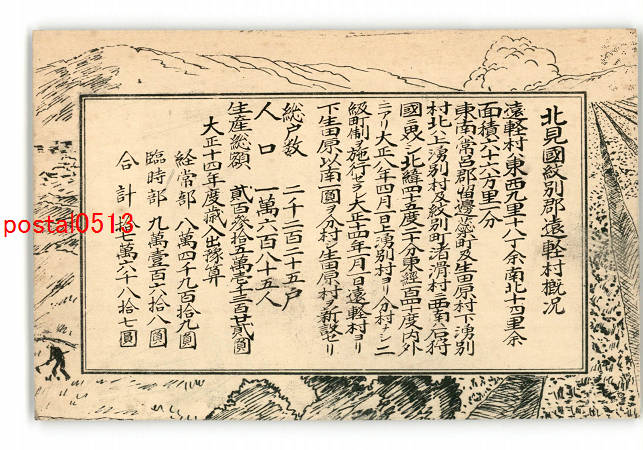 北見國紋別郡遠軽村概況
遠軽村ハ東西九里十八丁余南北十四里余
面積六十六方里二分
東南常呂郡留邊蘂町及生田原村下湧別
村北ハ上湧別村及紋別町渚滑村西南ハ石狩
國ニ界シ北緯四十五度二十分東經百四十度内外
ニアリ大正八年四月一日上湧別村ヨリ分村シ二
級町村制ヲ施行セラレ大正十四年一月一日遠軽村ヨリ
下生田原以南一圓ヲ分村シ生田原村ヲ新設セリ
総户数 二千二百二十五户
人口 一萬一六百八十五人
生産総額 貳百参拾五萬壱千三百廿貳圓
大正十四年度歳入出豫算
経常部 八萬四千九百拾九圓
臨時部 九萬壹百六拾八圓
合計 拾七萬六千八拾七圓
postal0513